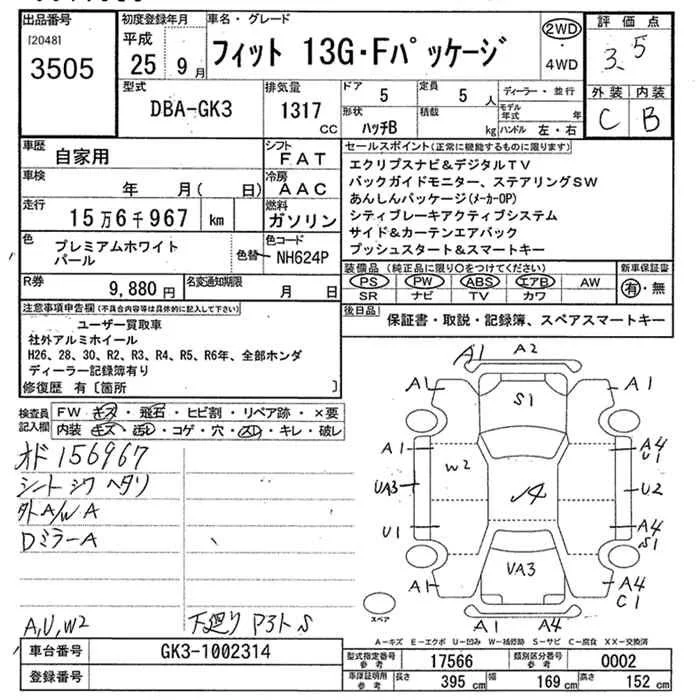 出品番号
[2048]
3505
初度登録年月
平成
25 9月
車名・グレード
フィット 13G・Fパッケージ
2WD
・
4WD
評価点
3.5
外装 内装
C B
型式
DBA-GK3
排気量
1317 CC
ドア 5
形状
ハッチB
定員 5 人
積載 kg
ディーラー・並行
モデル年式 年
ハンドル 左・右
車歴
自家用
シフト
FAT
車検 年 月( 日)
冷房
AAC
走行
15万6千967 km
燃料
ガソリン
色
プレミアムホワイト
パール
色替
色コード
NH624P
R券
9,880 円
名変通知期限
月 日
セールスポイント(正常に機能するものに限ります)
エクリプスナビ&デジタルTV
バックガイドモニター、ステアリングSW
あんしんパッケージ(メーカーOP)
シティブレーキアクティブシステム
サイド&カーテンエアバック
プッシュスタート&スマートキー
装備品 (純正品に限り○をつけてください)
PS PW ABS エアB AW
SR ナビ TV カワ
新車保証書
有・無
後日品
保証書・取説・記録簿、スペアスマートキー
注意事項申告欄(不具合内容等は具体的に記入して下さい)
ユーザー買取車
社外アルミホイール
H26、28、30、R2、R3、R4、R5、R6年、全部ホンダ
ディーラー記録簿有り
修復歴 有〔箇所 〕
検査員
記入欄
FW キズ・飛石・ヒビ割・リペア跡・×要
内装 キズ・汚レ・コゲ・穴・スレ・キレ・破レ
オド 156967
シート シワ ヘタリ
外A/W A
Dミラー A
A,U,W2
下廻り P3ト S
A1 A2
A1 S1 A1
A1 A4
U1
W2
UA3 U2
√4
U1 A4
S1
UA3
A1 A4
C1
A1 A4
スペア
A－キズ E－エクボ U－凹み W－補修跡 S－サビ C－腐食 XX－交換済
車台番号
GK3-1002314
登録番号
型式指定番号
参考
17566
類別区分番号
参考
0002
車庫証明用
参考
長さ 395 cm 幅 169 cm 高さ 152 cm